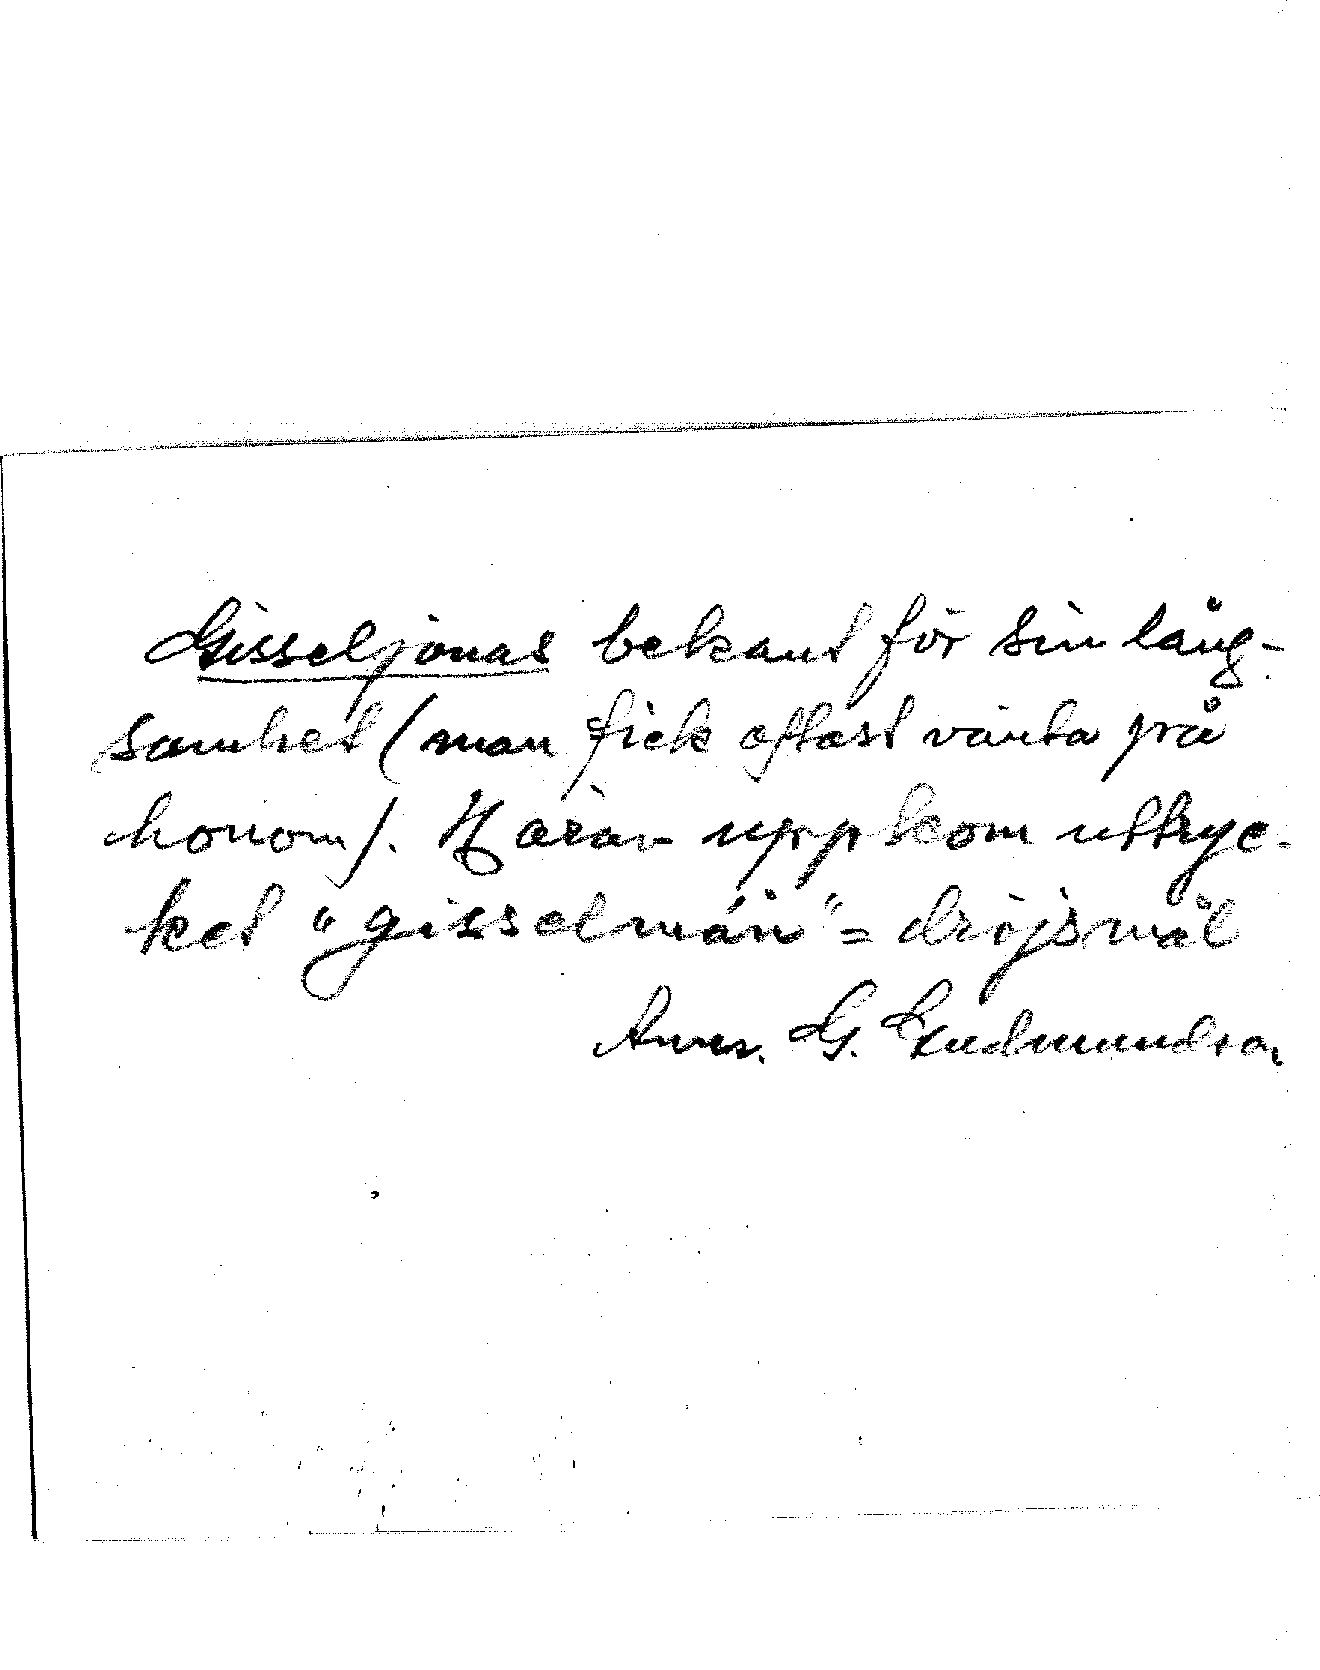 Gisseljonas bekant för sin lång-
samhet (man fick oftast vänta på
honom). Härav uppkom uttryc-
ket "gisselmån" = dröjsmål
Anm. G. Gudmundson